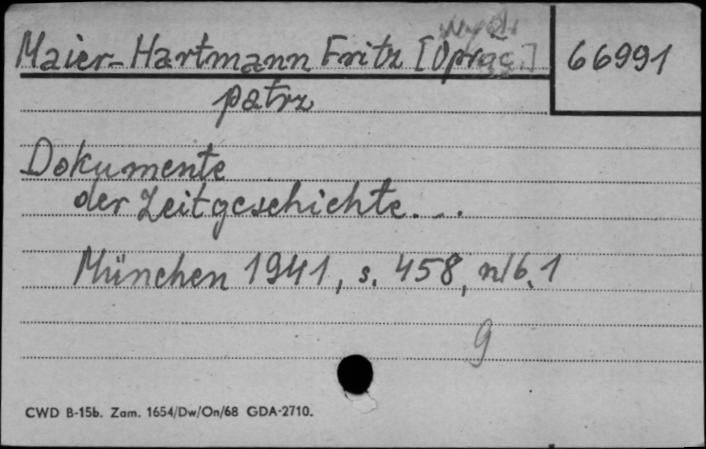 Wyd.
Maier-Hartmann Fritz [Oprac.] 66991
patrz
Dokumente
der Zeitgeschichte...
München 1941, s. 458, nlb. 1
g
CWD B-15b. Zam. 1654/Dw/On/68 GDA-2710.